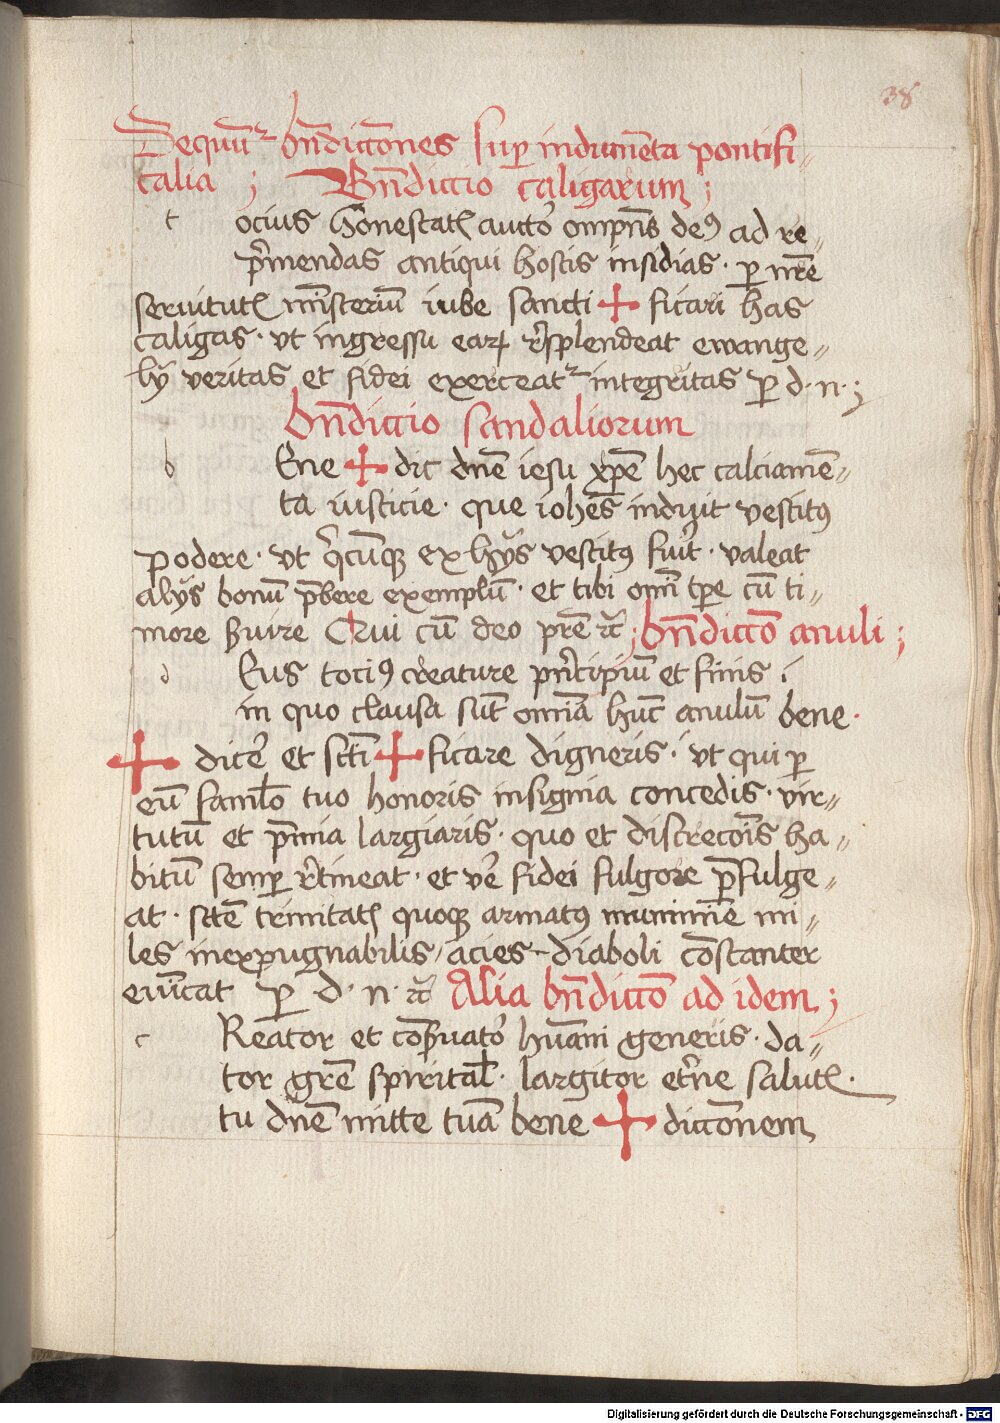 38
Sequūt᷑ bn̄dicc̄ones sup indumēta pontifi〃
calia ; Bn̄diccio caligarum ;
t ocius honestatꝭ auctoʾ omp̄ns deꝰ ad re〃
pʾmendas antiqui hostis insidias · ꝑ nr̄e
seruitutꝭ mīsteriū iube sancti ✚ ficari has
caligas · vt ingressu eaꝝ rʾsplendeat ewange〃
lÿ veritas et fidei exerceat᷑ integritas ꝑ d · n · ;
bn̄diccio sandaliorum
b Ene ✚ dic dn̄e iesu xp̄e hec calciamē〃
ta iusticie · que ioh̄es induit vestitꝰ
podere · vt qʾcūqꝫ ex hÿs vestitꝰ fuʾit · valeat
alÿs bonū p̄bere exemplū · et tibi om̄i tꝑe cū ti〃
more ẜuire Qui cū deo pr̄e ⁊c̄ ; bn̄dicc̄o anuli ;
d Eus tociꝰ creature pʾncipiū et finis ·
in quo clausa sūt om̄ia hūc anulū bene ·
✚ diceʾ et sc̄ti ✚ ficare digneris · vt qui ꝑ
eū famlo tuo honoris insignia concedis · vir〃
tutū et p̄mia largiaris · quo et discrecōis ha〃
bitū semꝑ rʾtineat · et veʾ fidei fulgore p̄fulge〃
at · sc̄te trinitatꝭ quoqꝫ armatꝰ munimīe mi〃
les inexpugnabilis / acies diaboli cōstanter
euīcat ꝑ d · n · ⁊c̄ Alia bn̄dicc̄o ad idem ;
c Reator et cōẜuatoʾ hūani generis · da〃
tor gr̄e spirital̄ · largitor eteʾne salutꝭ ·
tu dn̄e mitte tuā bene ✚ dicc̄onem
Digitalisierung gefördert durch die Deutsche Forschungsgemeinschaft - DFG